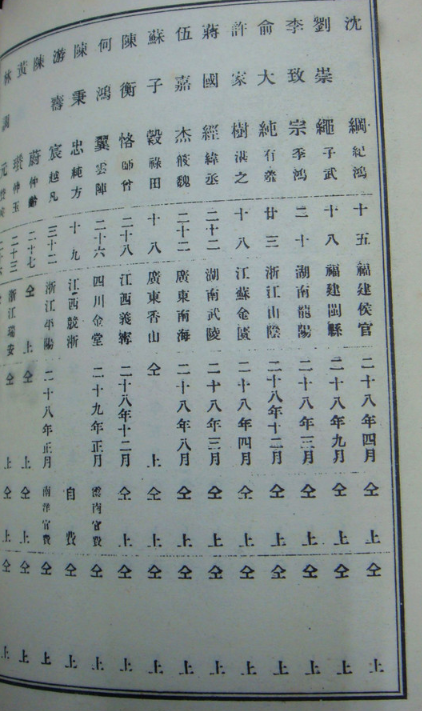 沈　綱 紀鴻 十五 福建侯官 二十八年四月 仝上 仝上
劉崇繩 子武 十八 福建閩縣 二十八年九月 仝上 仝上
李致宗 季鴻 二十 湖南龍陽 二十八年三月 仝上 仝上
俞大純 有 廿三 浙江山陰 二十八年十二月 仝上 仝上
許家樹 湛之 十八 江蘇金匱 二十八年四月 仝上 仝上
蔣國經 緯丞 二十二 湖南武陵 二十八年三月 仝上 仝上
伍嘉杰 筱魏 二十二 廣東南海 二十八年八月 仝上 仝上
蘇子穀 祿田 十八 廣東香山 仝上 仝上 仝上
陳衡恪 師曾 二十八 江西義寧 二十八年十二月 仝上 仝上
何鴻翼 雲陣 二十六 四川金堂 二十九年正月 官費 仝上
陳秉忠 純方 十九 江西 自費 仝上
游壽宸 越凡 三十二 浙江平陽 二十八年正月 南洋官費 仝上
陳蔚 仲齡 二十七 仝上 仝上 仝上 仝上
黃瓚 二十三 浙江瑞安 仝上 仝上 仝上
林 元